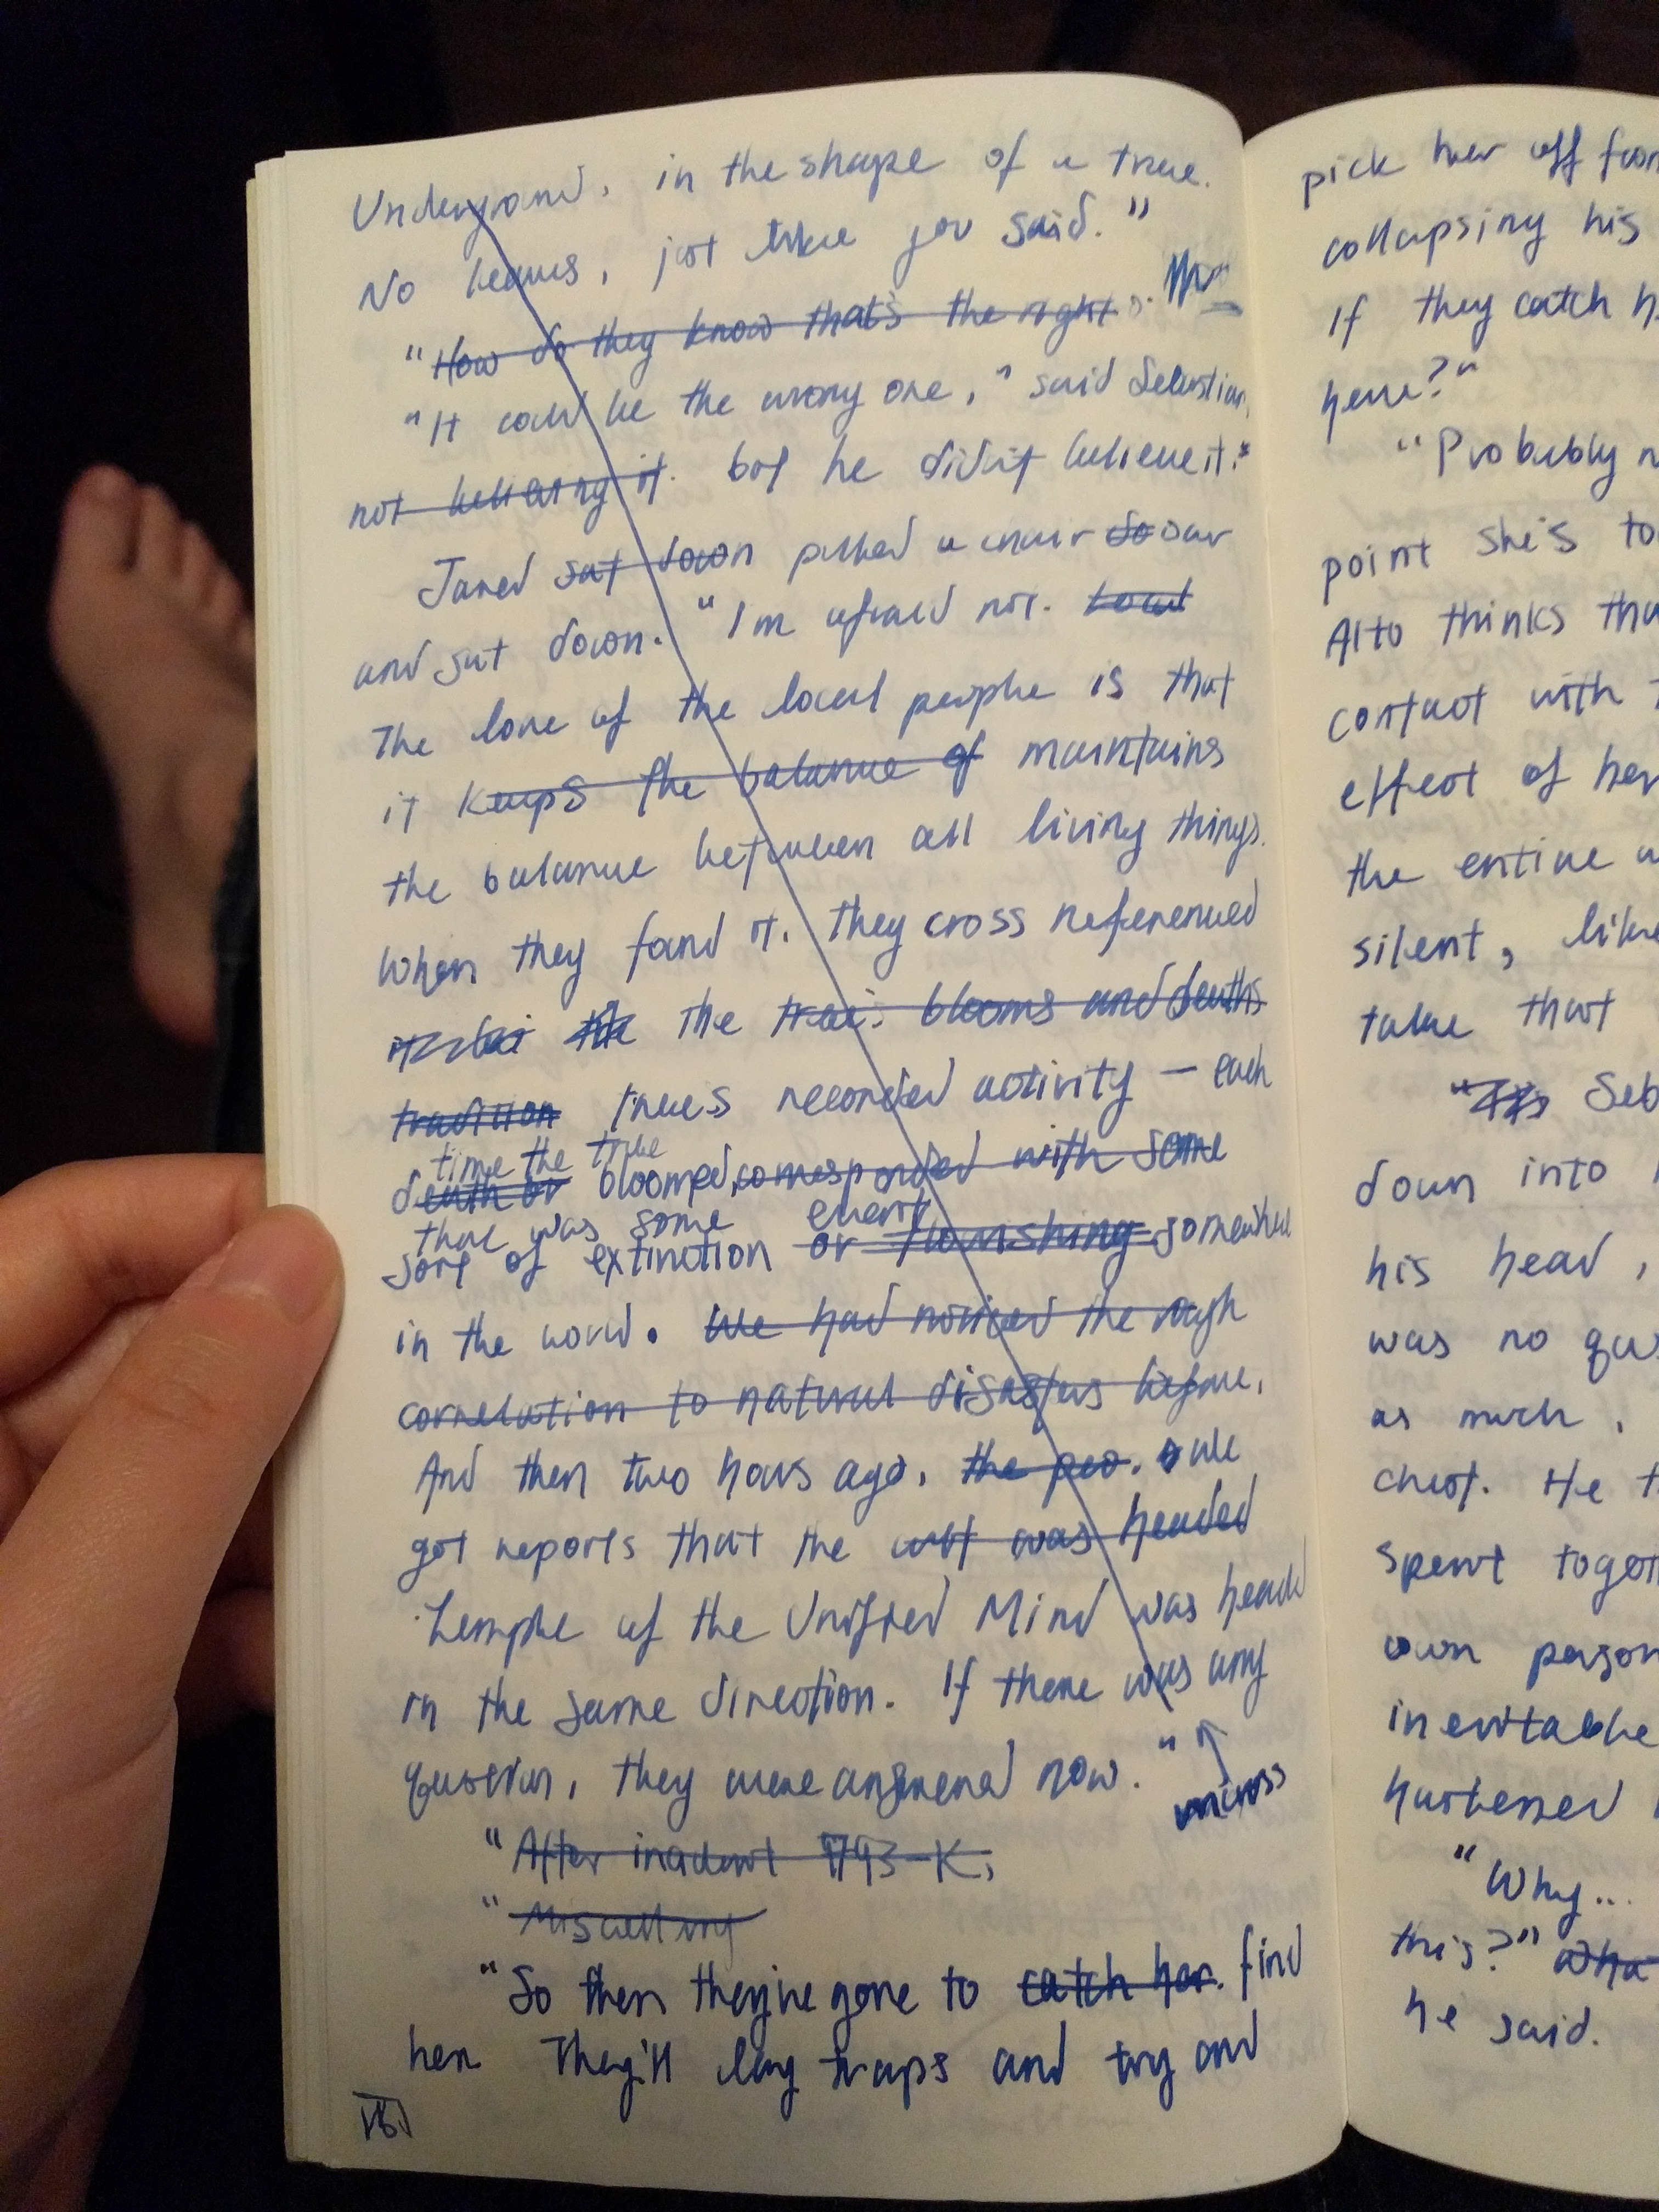 Underground, in the shape of a tree.
No leaves, just like you said."
"How do they know that's the right
"It could be the wrong one," said Sebastian,
not believing it. but he didn't believe it.
Jared sat down pulled a chair so over
and sat down. "I'm afraid not. Local
The lore of the local people is that
it keeps the balance of maintains
the balance between all living things.
When they found it, they cross referenced
the the blooms and deaths
tradition tree's recorded activity — each
time the tree
death or bloomed, corresponded with some
there was some event
sort of extinction or flourishing somewhere
in the world. We had noticed the rough
correlation to natural disasters before.
And then two hours ago, the peo. we
got reports that the cult was headed
Temple of the Unified Mind was headed
in the same direction. If there was any
question, they were answered now."
uncross
"After incident 1793-K,
"
"So then they've gone to catch her. find
her. They'll lay traps and try and
pick her off from
collapsing his
If they catch
here?"
"Probably
point she's
Alto thinks
contact with
effect of her
the entire
silent, like
take that
" Seb
down into
his head,
was no
as much,
chest. He
spent
own
inevitable
harkened
"Why...
this?"
he said.